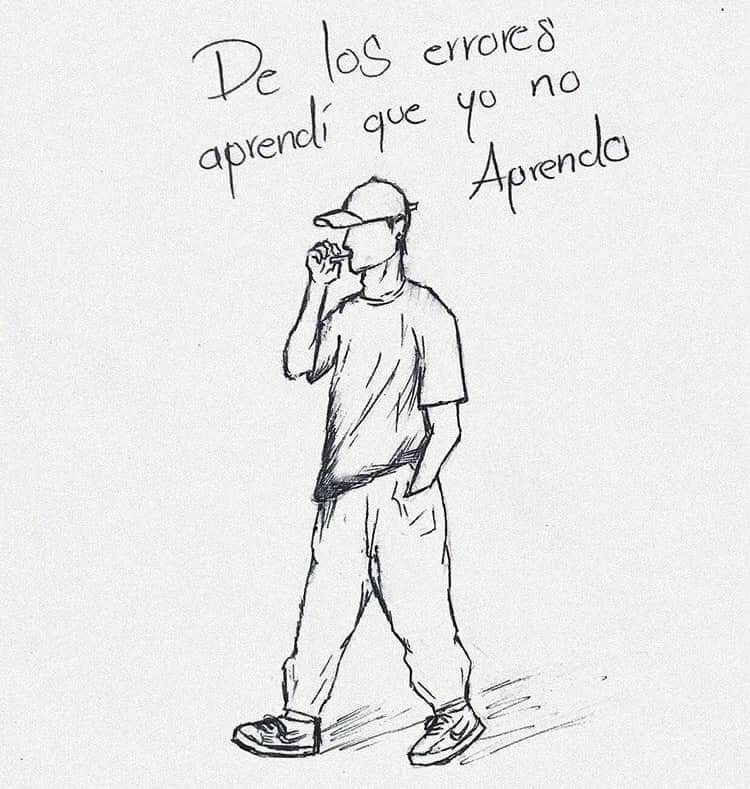 De los errores
aprendí que yo no
Aprendo